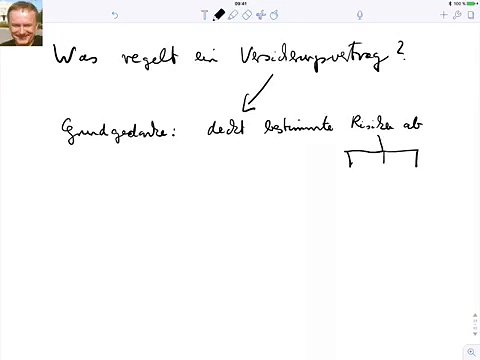 09:41
100 %
T
Was regelt ein Versicherungsvertrag?
Grundgedanke: deckt bestimmte Risiken ab